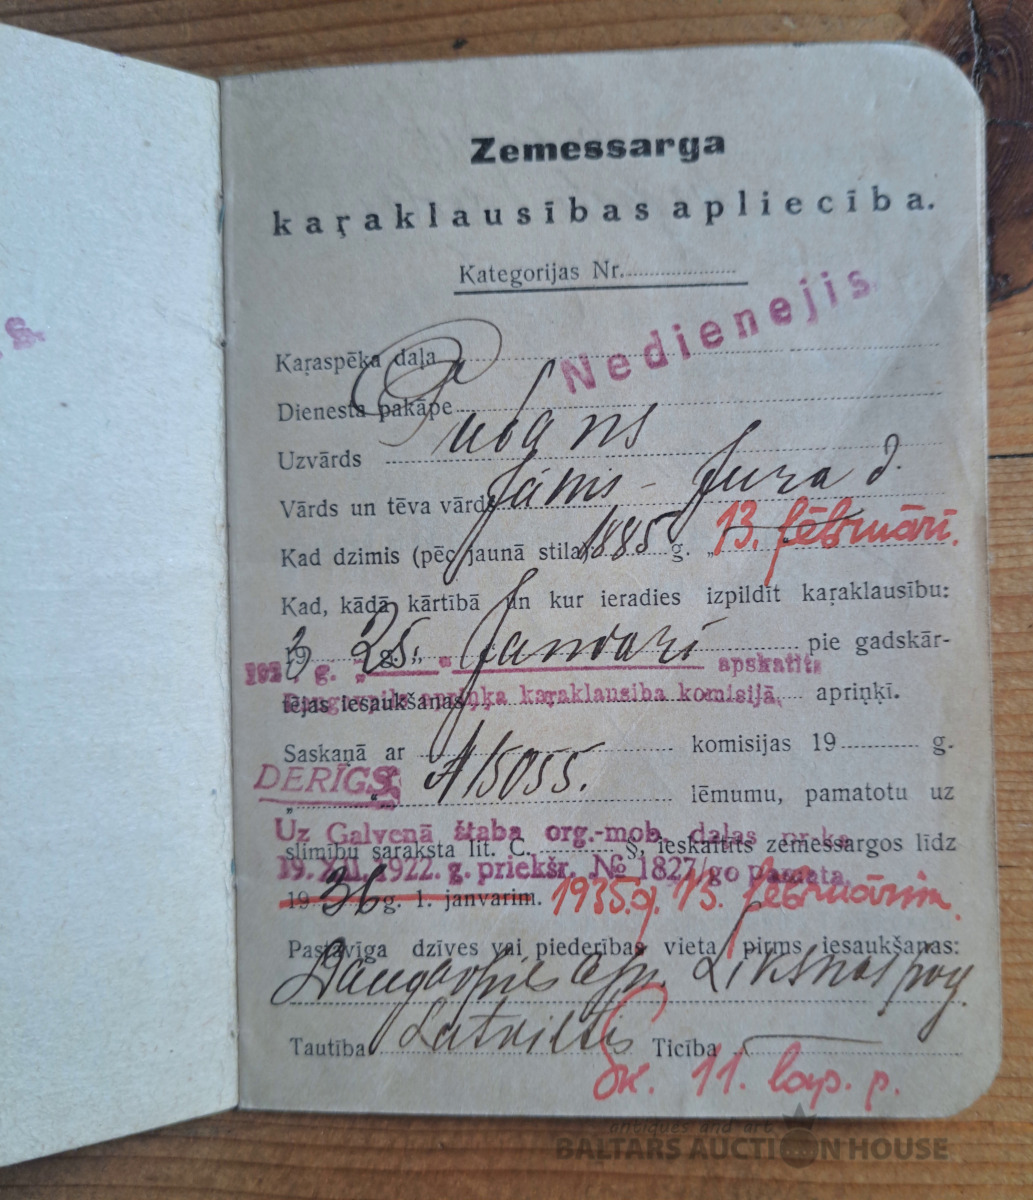 Zemessarga
kaŗaklausības apliecība.
Kategorijas Nr.
Nedienejis
Kaŗaspēka daļa
Dienesta pakāpe
Uzvārds
Vārds un tēva vārds Jānis - Jura d.
Kad dzimis (pēc jaunā stila) 1885 g. „ 13. februārī.
Kad, kādā kārtībā un kur ieradies izpildīt kaŗaklausību:
19 g. „ 25. " Janvarī pie gadskār-
g. apskatīts
tējas iesaukšanas apriņķī.
Daugavpils apriņķa kaŗaklausiba komisijā,
Saskaņā ar komisijas 19 g.
DERĪGS, A 15055. lēmumu, pamatotu uz
Uz Galvenā štaba org.-mob. daļas preks
slimību saraksta lit. C. §, ieskaitīts zemessargos līdz
19. XII. 1922. g. priekšr. № 1827/go pamata.
1936 g. 1. janvarim. 1935. g. 13. februārim.
Pastāvīga dzīves vai piederības vieta pirms iesaukšanas:
Daugavpils apr. Liksnas pag.
Tautība Latvietis Ticība
Sk. 11. lap. p.
antiques and art
BALTARS AUCTION HOUSE